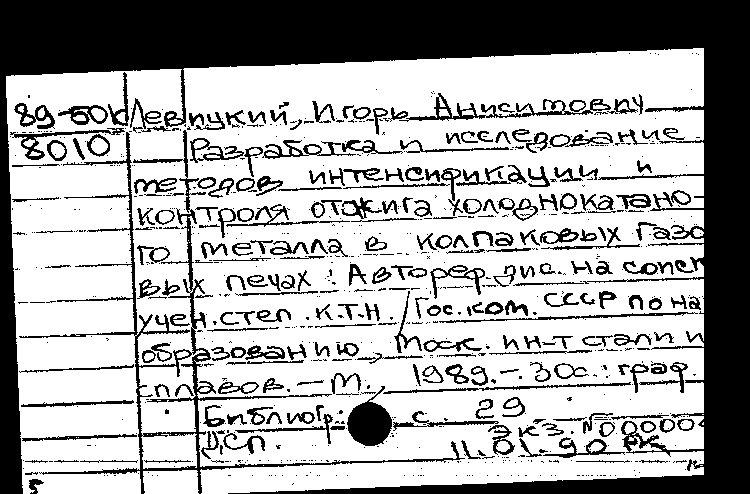 89-50к Левицкий, Игорь Анисимович
8010 Разработка и исследование
методов интенсификации и
контроля отжига холоднокатано-
го металла в колпаковых газо
вых печах : Автореф. дис. на соиск
учен. степ. к.т.н. / Гос. ком. СССР по на
образованию, Моск. ин-т стали и
сплавов. — М., 1989. - 30с. : граф.
Библиогр.: с. 29
Экз. №00000
ДСП. 11.01.90
5